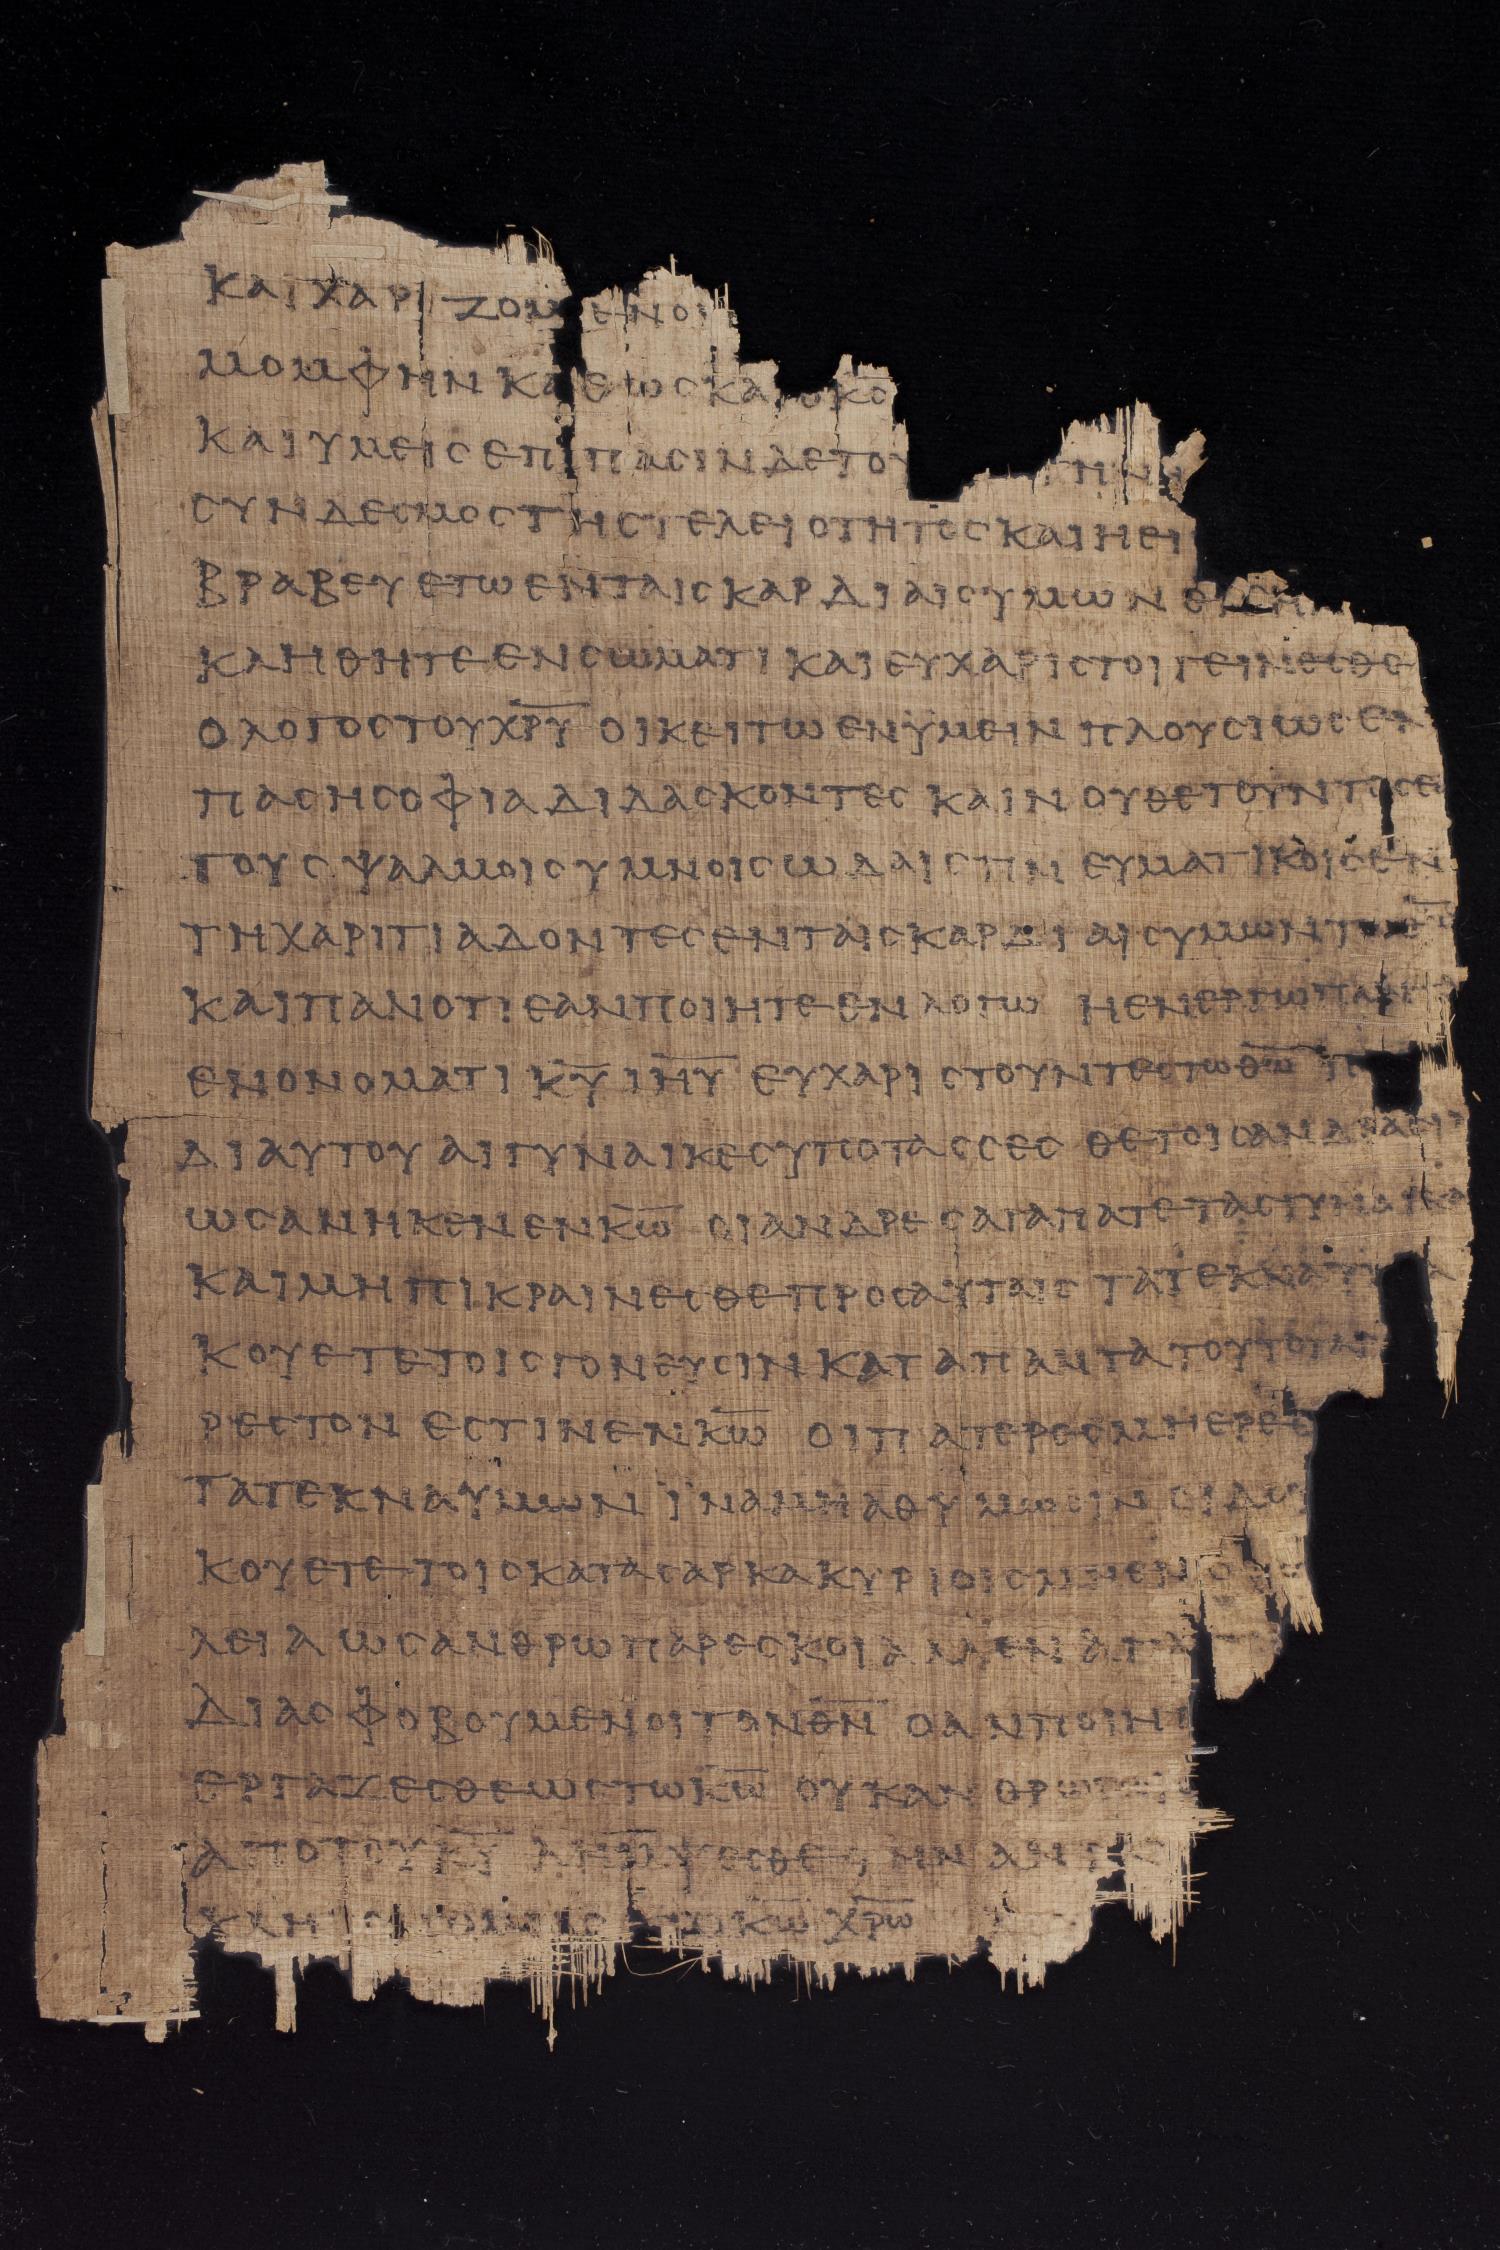 ΚΑΙ ΧΑΡΙΖΟΜΕΝΟΙ
ΜΟΜΦΗΝ ΚΑΘΩΣ ΚΑΙ Ο Κ̅Σ̅
ΚΑΙ ΥΜΕΙΣ ΕΠΙ ΠΑΣΙΝ ΔΕ ΤΟΥ
ΣΥΝΔΕΣΜΟΣ ΤΗΣ ΤΕΛΕΙΟΤΗΤΟΣ ΚΑΙ Η ΕΙ
ΒΡΑΒΕΥΕΤΩ ΕΝ ΤΑΙΣ ΚΑΡΔΙΑΙΣ ΥΜΩΝ ΕΙΣ ΗΝ
ΚΛΗΘΗΤΕ ΕΝ ΣΩΜΑΤΙ ΚΑΙ ΕΥΧΑΡΙΣΤΟΙ ΓΕΙΝΕΣΘΕ
Ο ΛΟΓΟΣ ΤΟΥ Χ̅Ρ̅Υ̅ ΟΙΚΕΙΤΩ ΕΝ ΫΜΕΙΝ ΠΛΟΥΣΙΩΣ ΕΝ
ΠΑΣΗ ΣΟΦΙΑ ΔΙΔΑΣΚΟΝΤΕΣ ΚΑΙ ΝΟΥΘΕΤΟΥΝΤΕΣ ΕΑΥ
ΤΟΥΣ ΨΑΛΜΟΙΣ ΥΜΝΟΙΣ ΩΔΑΙΣ ΠΝΕΥΜΑΤΙΚΟΙΣ ΕΝ
ΤΗ ΧΑΡΙΤΙ ΑΔΟΝΤΕΣ ΕΝ ΤΑΙΣ ΚΑΡΔΙΑΙΣ ΥΜΩΝ ΤΩ Θ̅Ω̅
ΚΑΙ ΠΑΝ ΟΤΙ ΕΑΝ ΠΟΙΗΤΕ ΕΝ ΛΟΓΩ Η ΕΝ ΕΡΓΩ ΠΑΝΤΑ
ΕΝ ΟΝΟΜΑΤΙ Κ̅Υ̅ Ι̅Η̅Υ̅ ΕΥΧΑΡΙΣΤΟΥΝΤΕΣ ΤΩ Θ̅Ω̅
ΔΙ ΑΥΤΟΥ ΑΙ ΓΥΝΑΙΚΕΣ ΥΠΟΤΑΣΣΕΣΘΕ ΤΟΙΣ ΑΝΔΡΑΣΙΝ
ΩΣ ΑΝΗΚΕΝ ΕΝ Κ̅Ω̅ ΟΙ ΑΝΔΡΕΣ ΑΓΑΠΑΤΕ ΤΑΣ ΓΥΝΑΙΚΑΣ
ΚΑΙ ΜΗ ΠΙΚΡΑΙΝΕΣΘΕ ΠΡΟΣ ΑΥΤΑΙΣ ΤΑ ΤΕΚΝΑ ΥΠΑ
ΚΟΥΕΤΕ ΤΟΙΣ ΓΟΝΕΥΣΙΝ ΚΑΤΑ ΠΑΝΤΑ ΤΟΥΤΟ ΓΑΡ
ΡΕΣΤΟΝ ΕΣΤΙΝ ΕΝ Κ̅Ω̅ ΟΙ ΠΑΤΕΡΕΣ ΜΗ ΕΡΕΘ
ΤΑ ΤΕΚΝΑ ΫΜΩΝ ΪΝΑ ΜΗ ΑΘΥΜΩΣΙΝ ΟΙ ΔΟΥ
ΚΟΥΕΤΕ ΤΟΙΣ ΚΑΤΑ ΣΑΡΚΑ ΚΥΡΙΟΙΣ ΜΗ ΕΝ
ΛΕΙΑ ΩΣ ΑΝΘΡΩΠΑΡΕΣΚΟΙ ΑΛΛ ΕΝ ΑΠΛΟ
ΔΙΑΣ ΦΟΒΟΥΜΕΝΟΙ ΤΟΝ Θ̅Ν̅ Ο ΑΝ ΠΟΙΗΤ
ΕΡΓΑΖΕΣΘΕ ΩΣ ΤΩ Κ̅Ω̅ ΟΥΚ ΑΝΘΡΩΠΟΙΣ
ΑΠΟ ΤΟΥ Κ̅Υ̅ ΛΗΜΨΕΣΘΕ ΤΗΝ ΑΝΤΑΠ
Κ̅Ω̅ Χ̅Ρ̅Ω̅